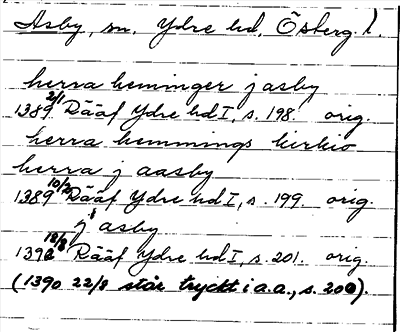 Asby, sn. Ydre hd, Österg. l.
herra heminger j asby
1389 2/1 Rääf Ydre hd I, s. 198. orig.
herra hemmings kirkio
herra j aasby
1389 10/2 Rääf Ydre hd I, s. 199. orig.
j asby
1390 18/8 Rääf Ydre hd I, s. 201. orig.
(1390 22/8 står tryckt i a.a., s. 200).